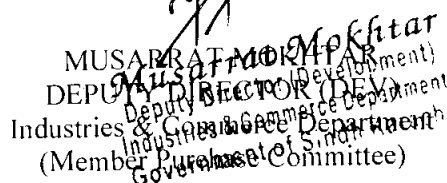 MUSARRAT MOKHTAR
DEPUTY DIRECTOR (DEV)
Industries & Commerce Department
(Member Purchase Committee)
Musarrat Mokhtar
Deputy Director (Development)
Industries & Commerce Department
Government of Sindh Karachi